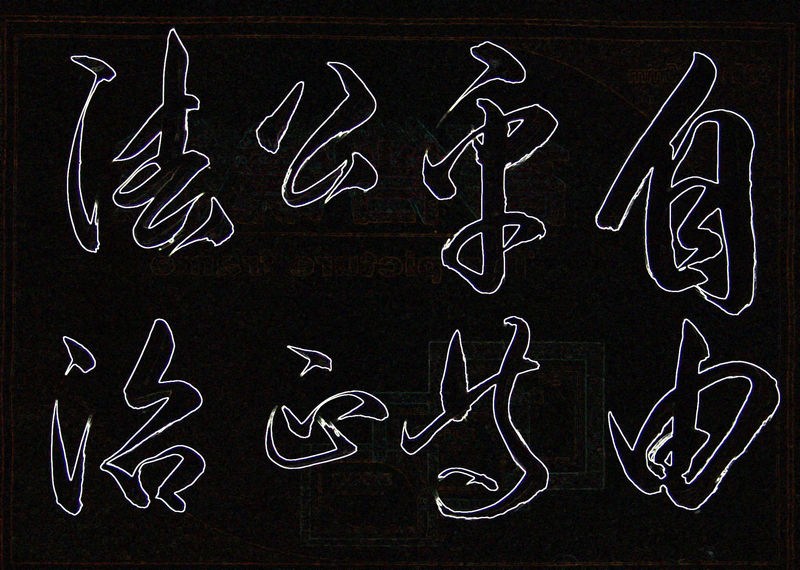 自由
平等
公正
法治